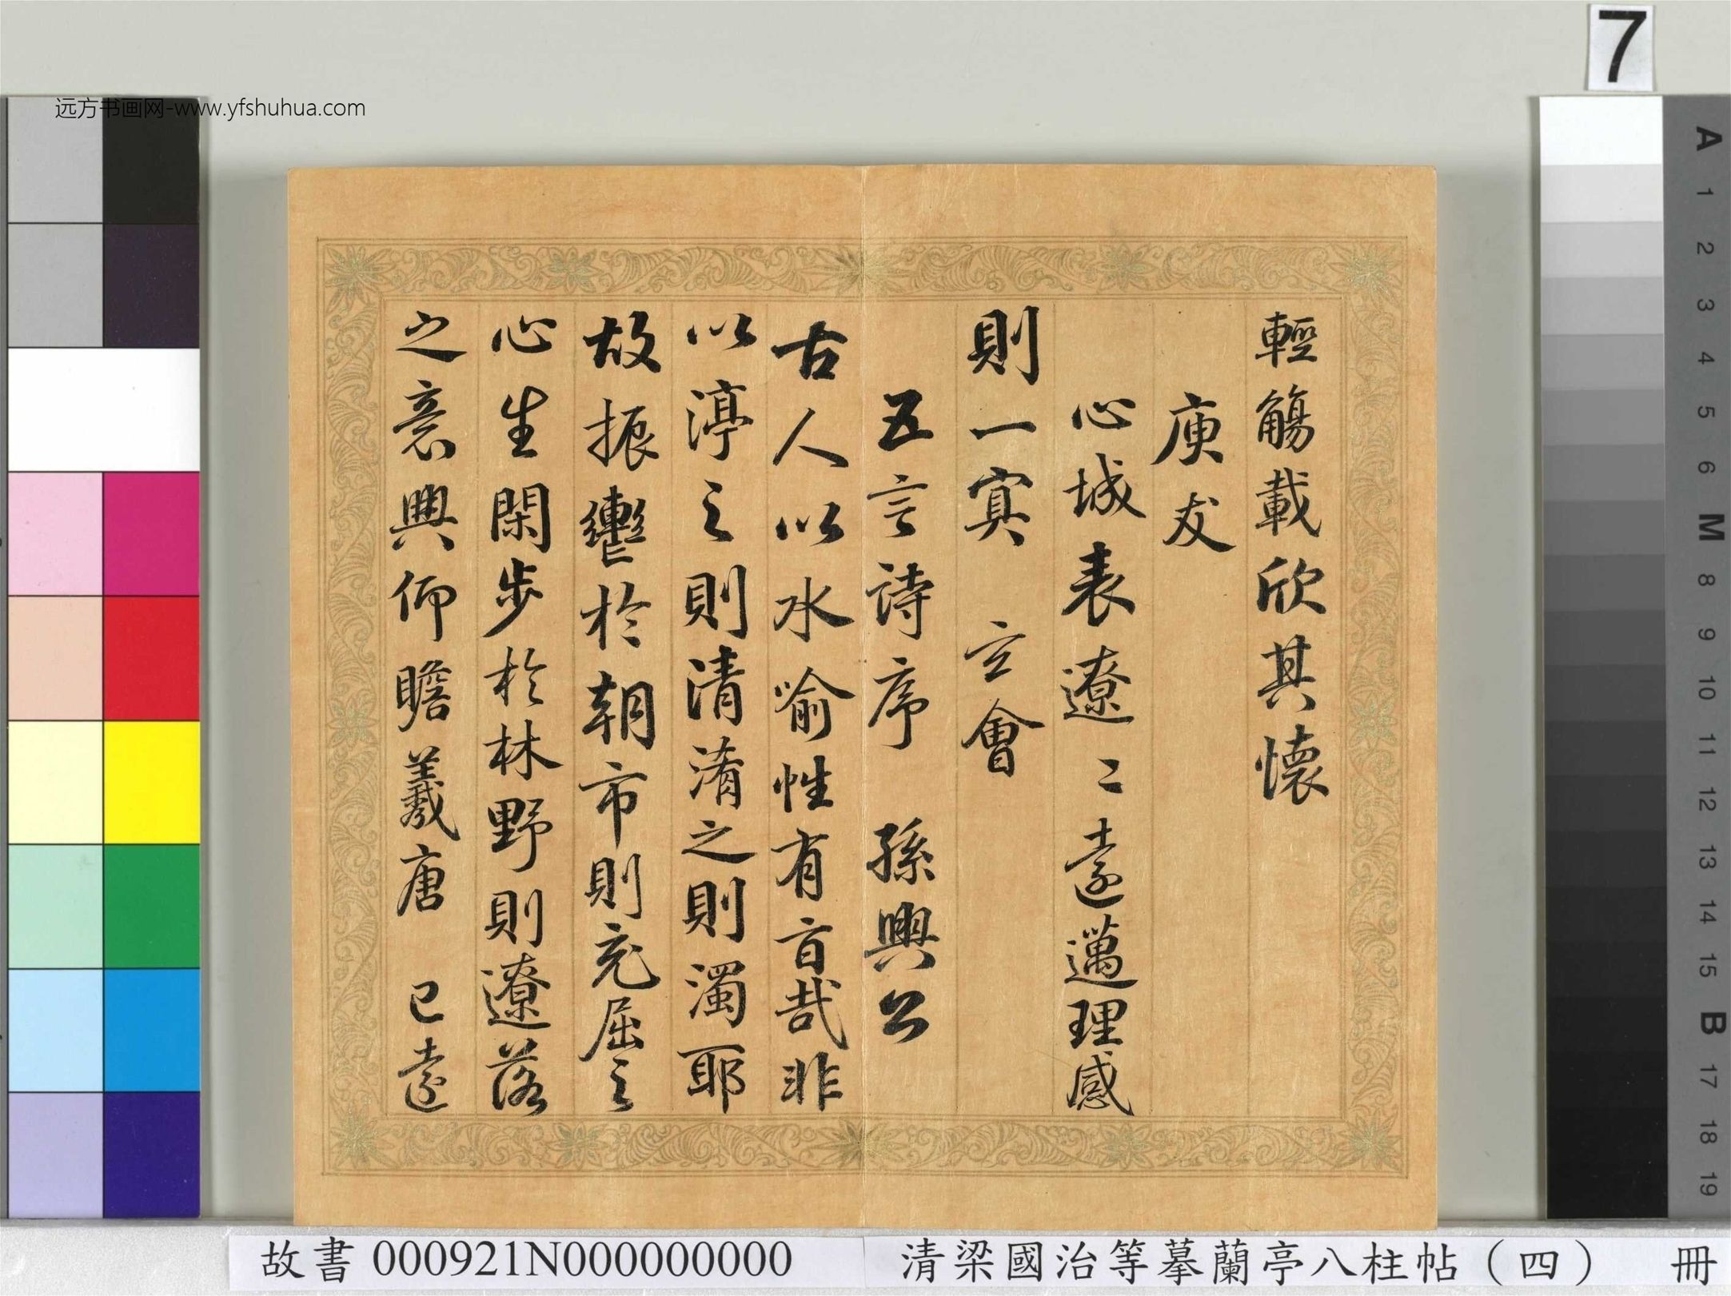 7
远方书画网-www.yfshuhua.com
輕觴載欣其懷
庾友
心城表遼〻遠邁理感
則一冥 玄會
五言詩序 孫興公
古人以水喻性有旨哉非
以渟之則清淆之則濁耶
故振轡於朝市則充屈之
心生閑步於林野則遼落
之意興仰瞻羲唐 已遠
A 1 2 3 4 5 6 M 8 9 10 11 12 13 14 15 B 17 18 19
故書 000921N000000000 清梁國治等摹蘭亭八柱帖（四） 冊